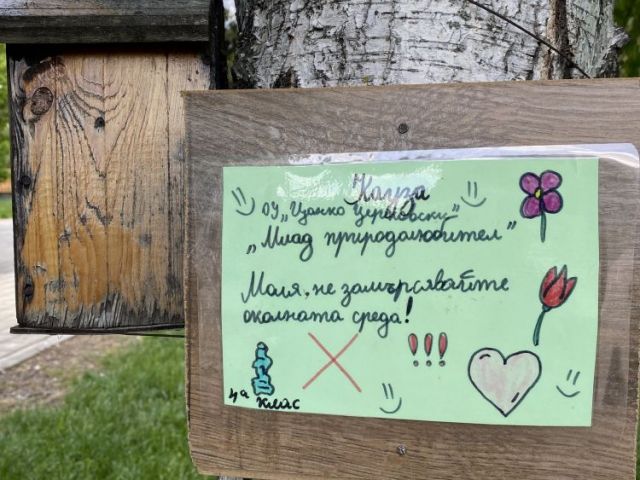 Кауза
ОУ „Цанко Церковски"
„Млад природолюбител"
Моля, не замърсявайте
околната среда!
!!!
4а клас